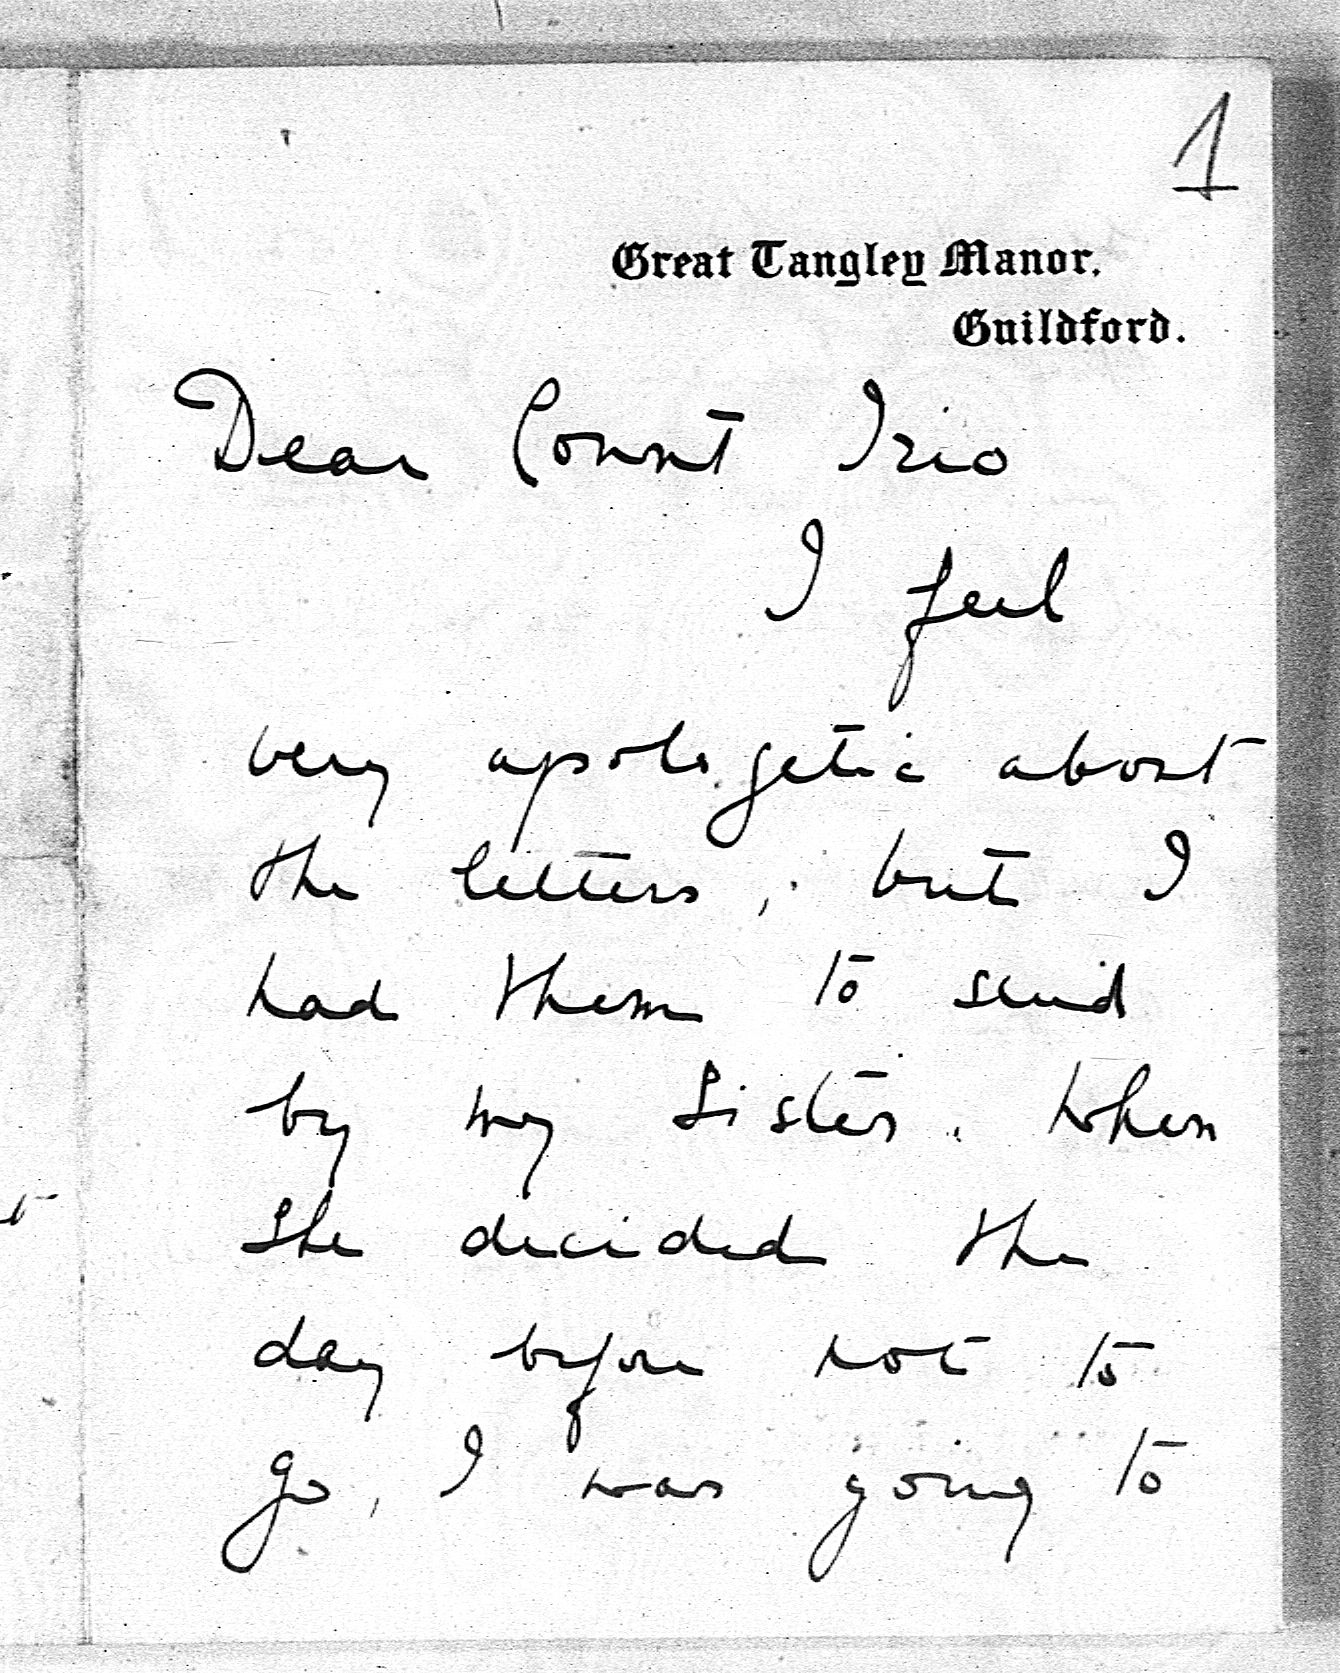 1
Great Tangley Manor,
Guildford.
Dear Count Irio
I feel
very apologetic about
the letters, but I
had them to send
by my Sister. When
She decided the
day before not to
go, I was going to